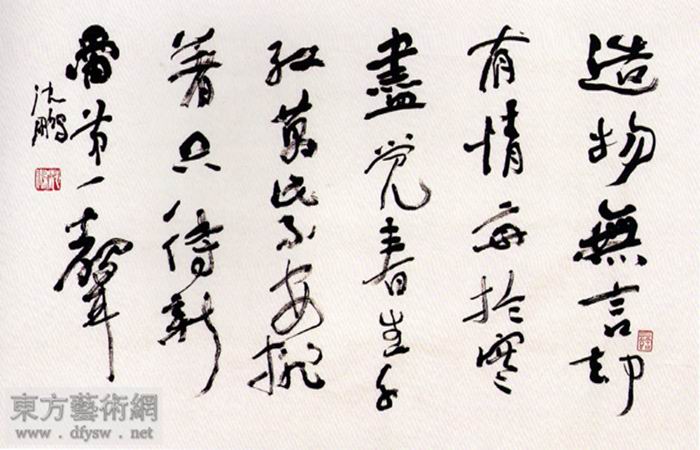 造物無言却
有情每於寒
盡覺春生千
紅萬紫安排
著只待新
雷第一聲
沈鵬
東方藝術網
www.dfysw.net